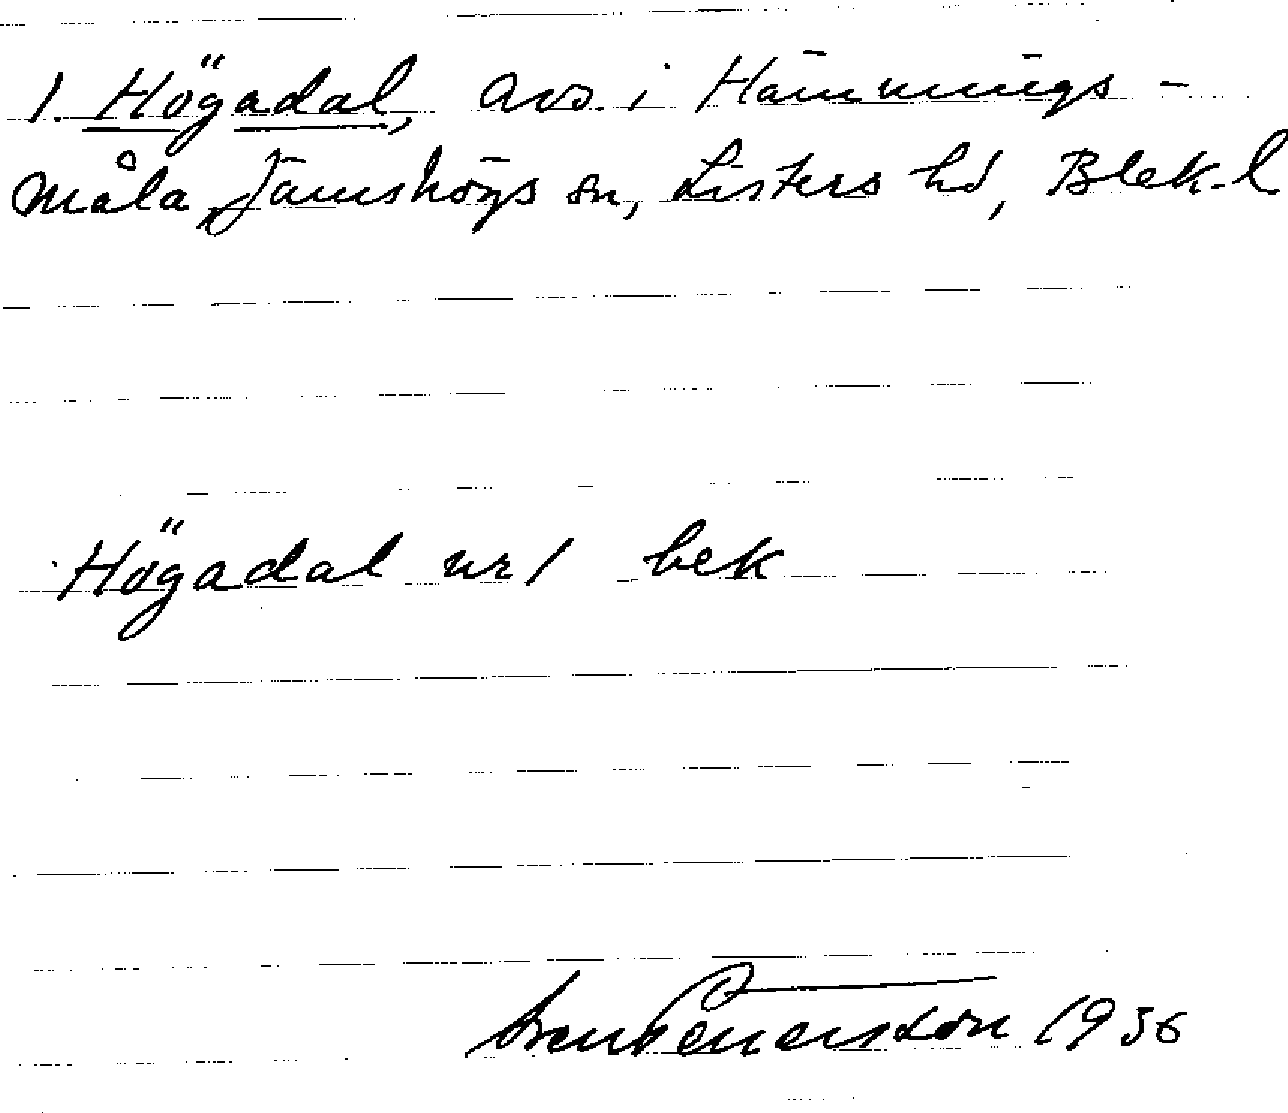 1. Högadal, avs. i Hämmings-
måla, Jämshögs sn, Listers hd, Blek. l
Högadal nr 1 bek
Sven Benson 1936